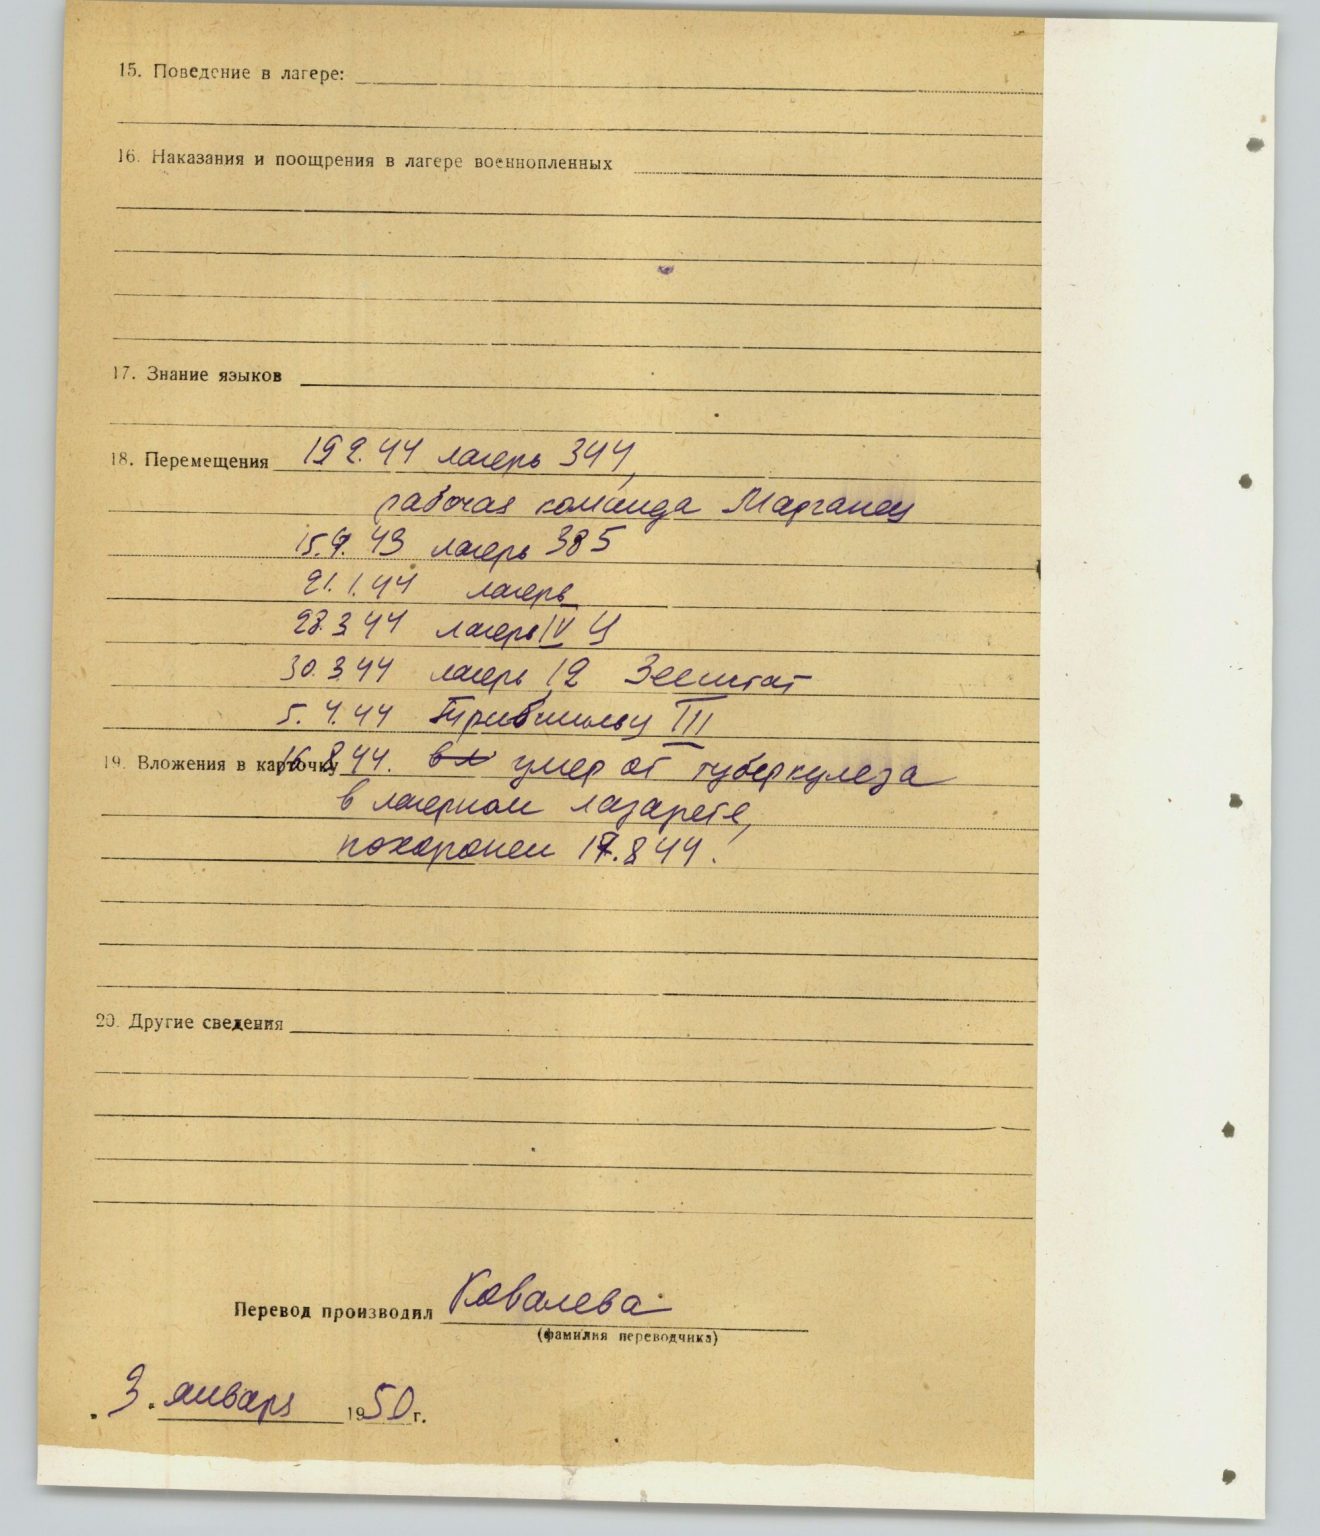 15. Поведение в лагере:
16. Наказания и поощрения в лагере военнопленных
17. Знание языков
18. Перемещения 19 2. 44 лагерь 344,
рабочая команда Марганец
15.9. 43 лагерь 385
21. 1. 44 лагерь
28. 3 44 лагерь IV Ц
30. 3 44 лагерь 12
5. 4. 44 III
19. Вложения в карточку 16 8 44. умер от туберкулеза
в лагерном лазарете,
похоронен 17. 8 44.
20. Другие сведения
Перевод производил Ковалева
(фамилия переводчика)
„3" январь 1950 г.